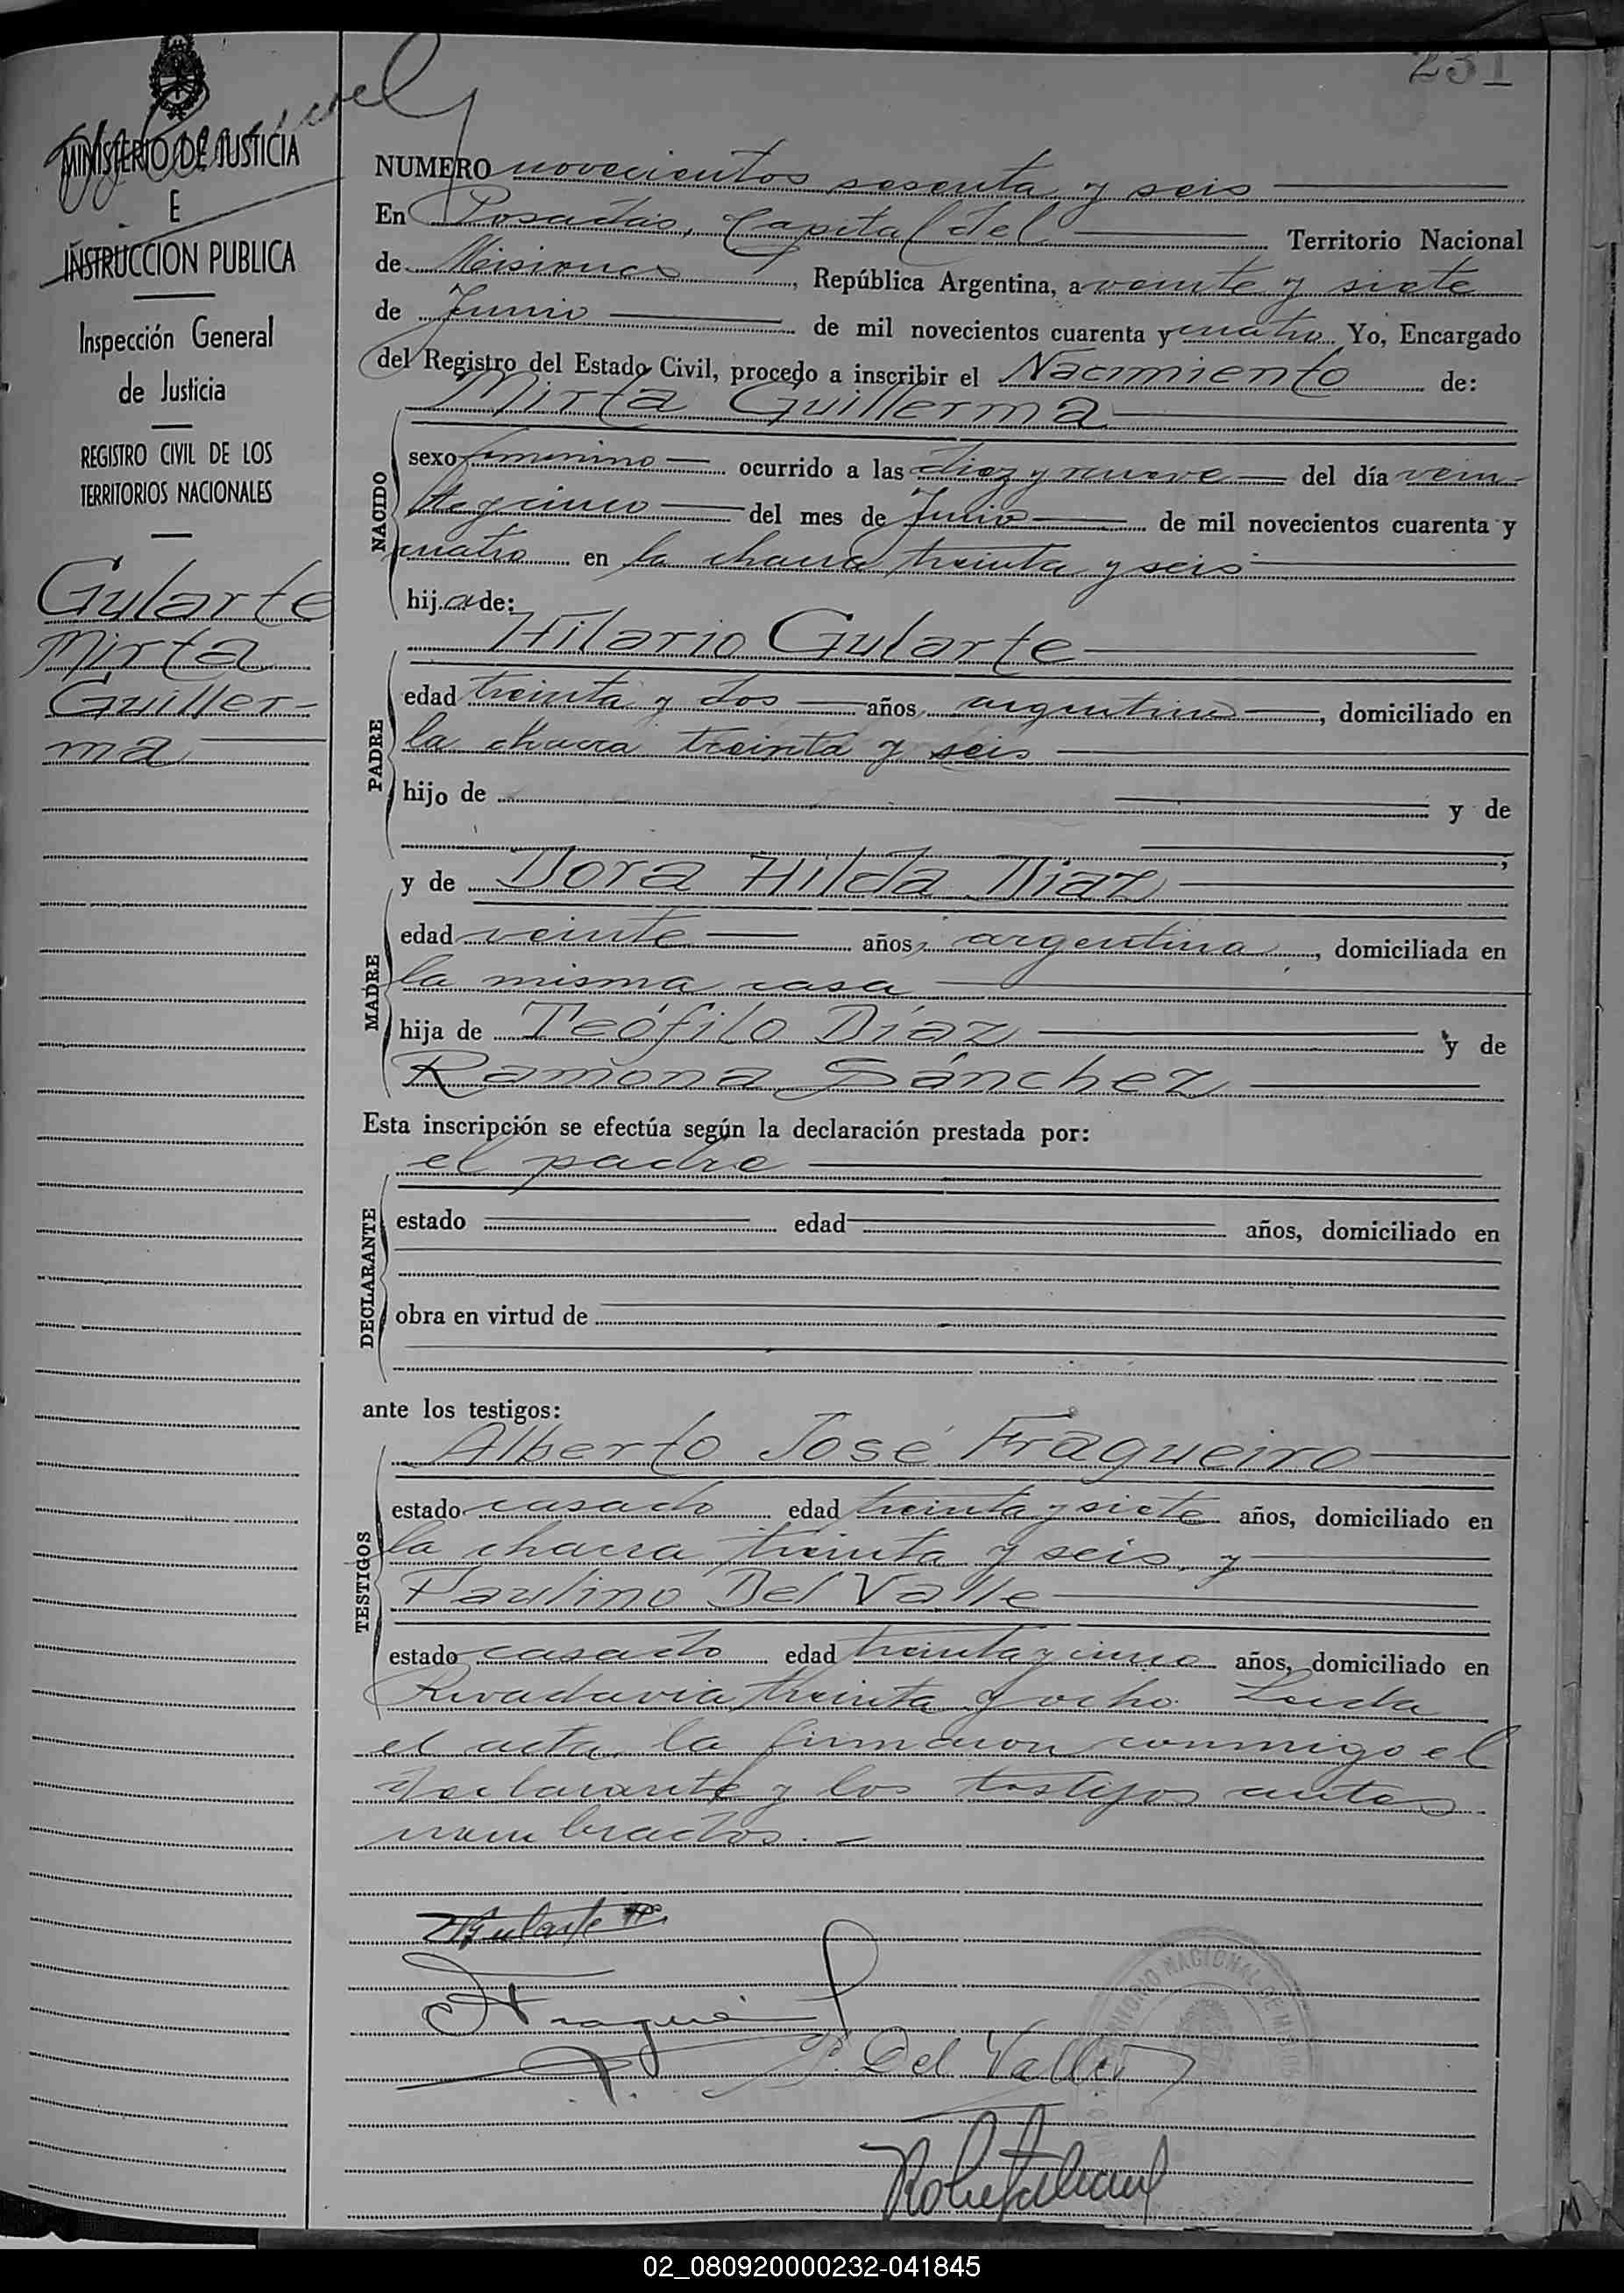 231
MINISTERIO DE JUSTICIA
E
INSTRUCCION PUBLICA
Inspección General
de Justicia
REGISTRO CIVIL DE LOS
TERRITORIOS NACIONALES
Gularte
Mirta
Guiller-
ma
NUMERO novecientos sesenta y seis
En Posadas, Capital del Territorio Nacional
de Misiones, República Argentina, a veinte y siete
de Junio de mil novecientos cuarenta y cuatro Yo, Encargado
del Registro del Estado Civil, procedo a inscribir el Nacimiento de:
Mirta Guillerma
NACIDO
sexo femenino ocurrido a las diez y nueve del día vein-
te y cinco del mes de Junio de mil novecientos cuarenta y
cuatro en la chacra treinta y seis
hij a de:
Hilario Gularte
PADRE
edad treinta y dos años, argentino, domiciliado en
la chacra treinta y seis
hijo de y de
y de Dora Hilda Diaz
MADRE
edad veinte años, argentina, domiciliada en
la misma casa
hija de Teófilo Díaz y de
Ramona Sánchez
Esta inscripción se efectúa según la declaración prestada por:
el padre
DECLARANTE
estado edad años, domiciliado en
obra en virtud de
ante los testigos:
Alberto José Fragueiro
TESTIGOS
estado casado edad treinta y siete años, domiciliado en
la chacra treinta y seis y
Paulino Del Valle
estado casado edad treinta y cinco años, domiciliado en
Rivadavia treinta y ocho. Leida
el acta, la firmaron conmigo el
declarante y los testigos antes
nombrados.-
Gularte
P. Del Valle
02_080920000232-041845